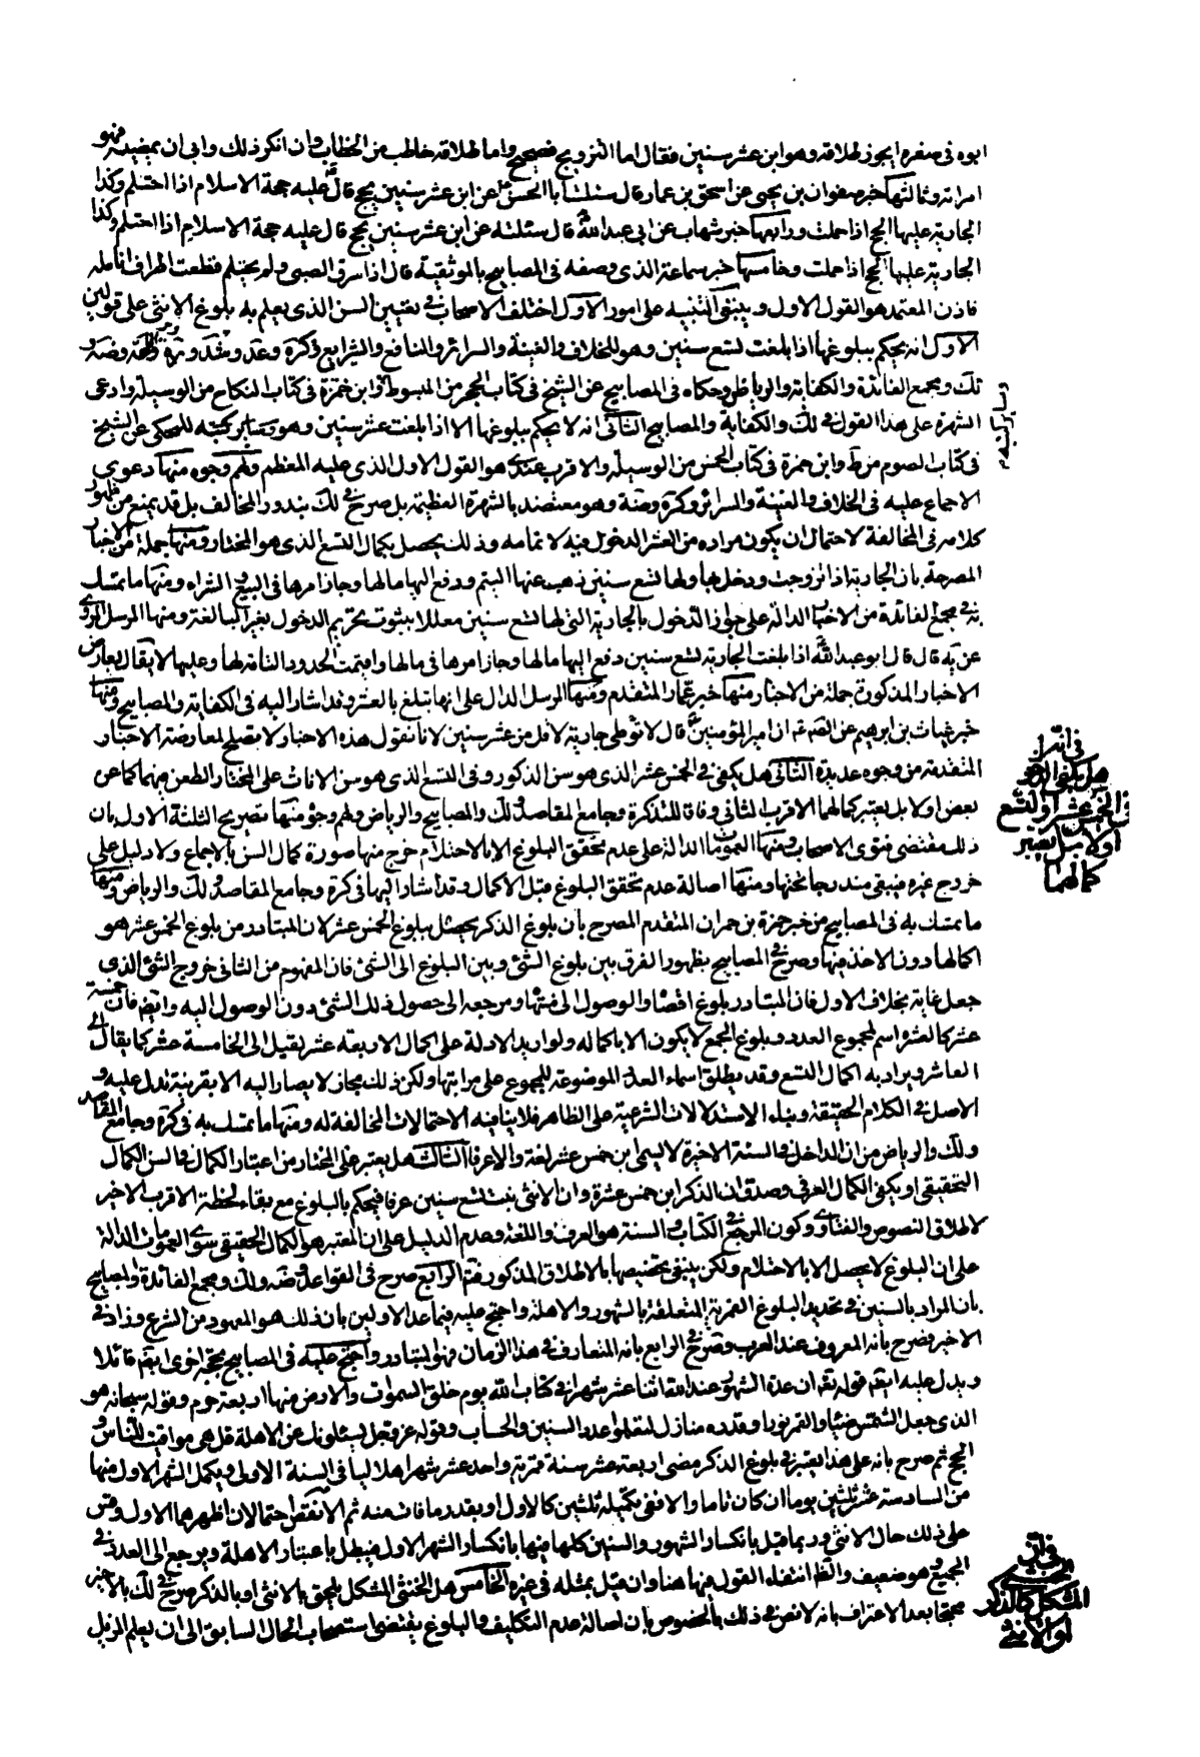 ابوه فى صغره ايجوز طلاقه وهو ابن عشر سنين فقال اما التزويج فصحيح واما طلاقه خاطب من الخطاب وان انكر ذلك وابى ان يمضيه فهو
امراته وثالثها خبر صفوان بن يحيى عن اسحق بن عمار قال سئلت ابا الحسن ع عن ابن عشر سنين يحج قال عليه حجة الاسلام اذا احتلم وكذا
الجارية عليها الحج اذا حملت ورابعها خبر شهاب عن ابى عبد الله ع قال سئلته عن ابن عشر سنين يحج قال عليه حجة الاسلام اذا احتلم وكذا
الجارية عليها الحج اذا حملت وخامسها خبر سماعة الذى وصفه فى المصابيح بالموثقية قال اذا سرق الصبى ولم يحتلم قطعت اطراف انامله
فاذن المعتمد هو القول الاول وينبغى التنبيه على امور الاول اختلف الاصحاب فى تعيين السن الذى يعلم به بلوغ الانثى على قولين
الاول انه يحكم ببلوغها اذا بلغت تسع سنين وهو للخلاف والغنية والسرائر والنافع والشرايع وكرة وعد وشد
لك ومجمع الفائدة والكفاية والرياض وحكاه فى المصابيح عن الشيخ فى كتاب الحجر من المبسوط وابن حمزة فى كتاب النكاح من الوسيلة وادعى
الشهرة على هذا القول فى لك والكفاية والمصابيح الثانى انه لا يحكم ببلوغها الا اذا بلغت عشر سنين وهو للمحكى عن الشيخ
فى كتاب الصوم من ط وابن حمزة فى كتاب الخمس من الوسيلة والاقرب عندى هو القول الاول الذى عليه المعظم ولهم وجوه منها دعوى
الاجماع عليه فى الخلاف والغنية والسرائر وكرة وضة وهو معتضد بالشهرة العظيمة بل صرح فى لك بندور المخالف بل قد يمنع من ظهور
كلامه فى المخالفة لاحتمال ان يكون مراده من العشر الدخول فيه لا تمامه وذلك يحصل بكمال التسع الذى هو المختار ومنها جملة من الاخبار
المصرحة بان الجارية اذا تزوجت ودخل بها ولها تسع سنين ذهب عنها اليتم ودفع اليها مالها وجاز امرها فى البيع والشراء ومنها ما تمسك
به فى مجمع الفائدة من الاخبار الدالة على جواز الدخول بالجارية التى لها تسع سنين معللا بثبوت تحريم الدخول بغير البالغة ومنها المرسل المروى
عن يه قال قال ابو عبد الله ع اذا بلغت الجارية تسع سنين دفع اليها مالها وجاز امرها فى مالها واقيمت الحدود التامة لها وعليها لا يقال يعارض
الاخبار المذكورة جملة من الاخبار منها خبر عمار المتقدم ومنها المرسل الدال على انها تبلغ بالعشر وقد اشار اليه فى الكفاية والمصابيح ومنها
خبر غياث بن ابرهيم عن عن امير المؤمنين ع قال لا توطى جارية لاقل من عشر سنين لانا نقول هذه الاخبار لا تصلح لمعارضة الاخبار
المتقدمة من وجوه عديدة الثانى هل يكفى فى الخمس عشر الذى هو سن الذكور وفى التسع الذى هو سن الاناث على المختار الطعن فيهما كما عن
بعض اولا بل يعتبر كمالهما الاقرب الثانى وفاقا للتذكرة وجامع المقاصد ولك والمصابيح والرياض ولهم وجوه منها تصريح الثلثة الاول بان
ذلك مقتضى فتوى الاصحاب ومنها العمومات الدالة على عدم تحقق البلوغ الا بالاحتلام خرج منها صورة كمال السن بالاجماع ولا دليل على
خروج غيره فيبقى مندرجا تحتها ومنها اصالة عدم تحقق البلوغ قبل الاكمال وقد اشار اليها فى كرة وجامع المقاصد ولك والرياض ومنها
ما تمسك به فى المصابيح من خبر حمزة بن حمران المتقدم المصرح بان بلوغ الذكر يحصل ببلوغ الخمس عشر لان المتبادر من بلوغ الخمس عشر هو
اكمالها دون الاخذ فيها وصرح فى المصابيح بظهور الفرق بين بلوغ الشئ وبين البلوغ الى الشئ فان المفهوم من الثانى خروج الشئ الذى
جعل غاية بخلاف الاول فان المتبادر بلوغ اقصاه والوصول الى منتهاه ومرجعه الى حصول ذلك الشئ دون الوصول اليه وايضا فان خمسة
عشر كالعشرة اسم لمجموع العدد وبلوغ المجمع لا يكون الا باكماله ولو اريد الادلة على اكمال الاربعة عشر لقيل الى الخامسة عشر كما يقال الى
العاشر ويراد به اكمال التسع وقد يطلق اسماء العدد الموضوعة للمجموع على مراتبها ولكن ذلك مجاز لا يصار اليه الا بقرينة تدل عليه و
الاصل فى الكلام الحقيقة وبناء الاستدلالات الشرعية على الظاهر فلا ينافيه الاحتمالات المخالفة له ومنها ما تمسك به فى كرة وجامع المقاصد
ولك والرياض من ان الداخل فى السنة الاخيرة لا يسمى ابن خمس عشر لغة ولا عرفا الثالث هل يعتبر على المختار من اعتبار الكمال فى السن الكمال
التحقيقى او يكفى الكمال العرفى وصدق ان الذكر ابن خمس عشرة وان الانثى بنت تسع سنين عرفا فيحكم بالبلوغ مع بقاء لحظة الاقرب الاخير
لاطلاق النصوص والفتاوى وكون المرجع فى الكتاب والسنة هو العرف واللغة وعدم الدليل على ان المعتبر هو الكمال الحقيقى سوى العمومات الدالة
على ان البلوغ لا يحصل الا بالاحتلام ولكن ينبغى تخصيصها بالاطلاق المذكور فتم الرابع صرح فى القواعد وضة ولك ومجمع الفائدة والمصابيح
بان المراد بالسنين فى تحديد البلوغ القمرية المتعلقة بالشهور والاهلة واحتج عليه فيما عدا الاولين بان ذلك هو المعهود من الشرع وزاد فى
الاخير فصرح بانه المعروف عند العرب وصرح فى الرابع بانه المتعارف فى هذا الزمان فهو المتبادر واحتج عليه فى المصابيح بحجة اخرى ايضا قائلا
ويدل عليه ايضا قوله تعالى ان عدة الشهور عند الله اثنا عشر شهرا فى كتاب الله يوم خلق السموات والارض منها اربعة حرم وقوله سبحانه هو
الذى جعل الشمس ضياء والقمر نورا وقدره منازل لتعلموا عدد السنين والحساب وقوله عز وجل يسئلونك عن الاهلة قل هى مواقيت للناس و
الحج ثم صرح بانه على هذا يعتبر فى بلوغ الذكر مضى اربعة عشر سنة قمرية واحد عشر شهرا هلاليا فى السنة الاولى ويكمل الشهر الاول منها
من السادسة عشر ثلثين يوما ان كان تاما والا ففى تكميله ثلثين كالاول او بقدر ما فات منه ثم النقص احتمالان اظهرهما الاول وقس
على ذلك حال الانثى وربما قيل بانكسار الشهور والسنين كلها فيها بانكسار الشهر الاول فيبطل باعتبار الاهلة ويرجع الى العدد فى
الجميع وهو ضعيف والظاهر انتفاء القول فيها هنا وان قيل بمثله فى غيره الخامس هل الخنثى المشكل يلحق بالانثى او بالذكر صرح فى لك بالاخير
محتجا بعد الاعتراف بانه لا نص فى ذلك بالخصوص بان اصالة عدم التكليف والبلوغ يقتضى استصحاب الحال السابق الى ان يعلم المزيل
فى انه
هل يكفى الاخذ
فى الخمس عشر او التسع
اولا بل يعتبر
كمالهما
فى ان
الخنثى
المشكل كالذكر
او الانثى